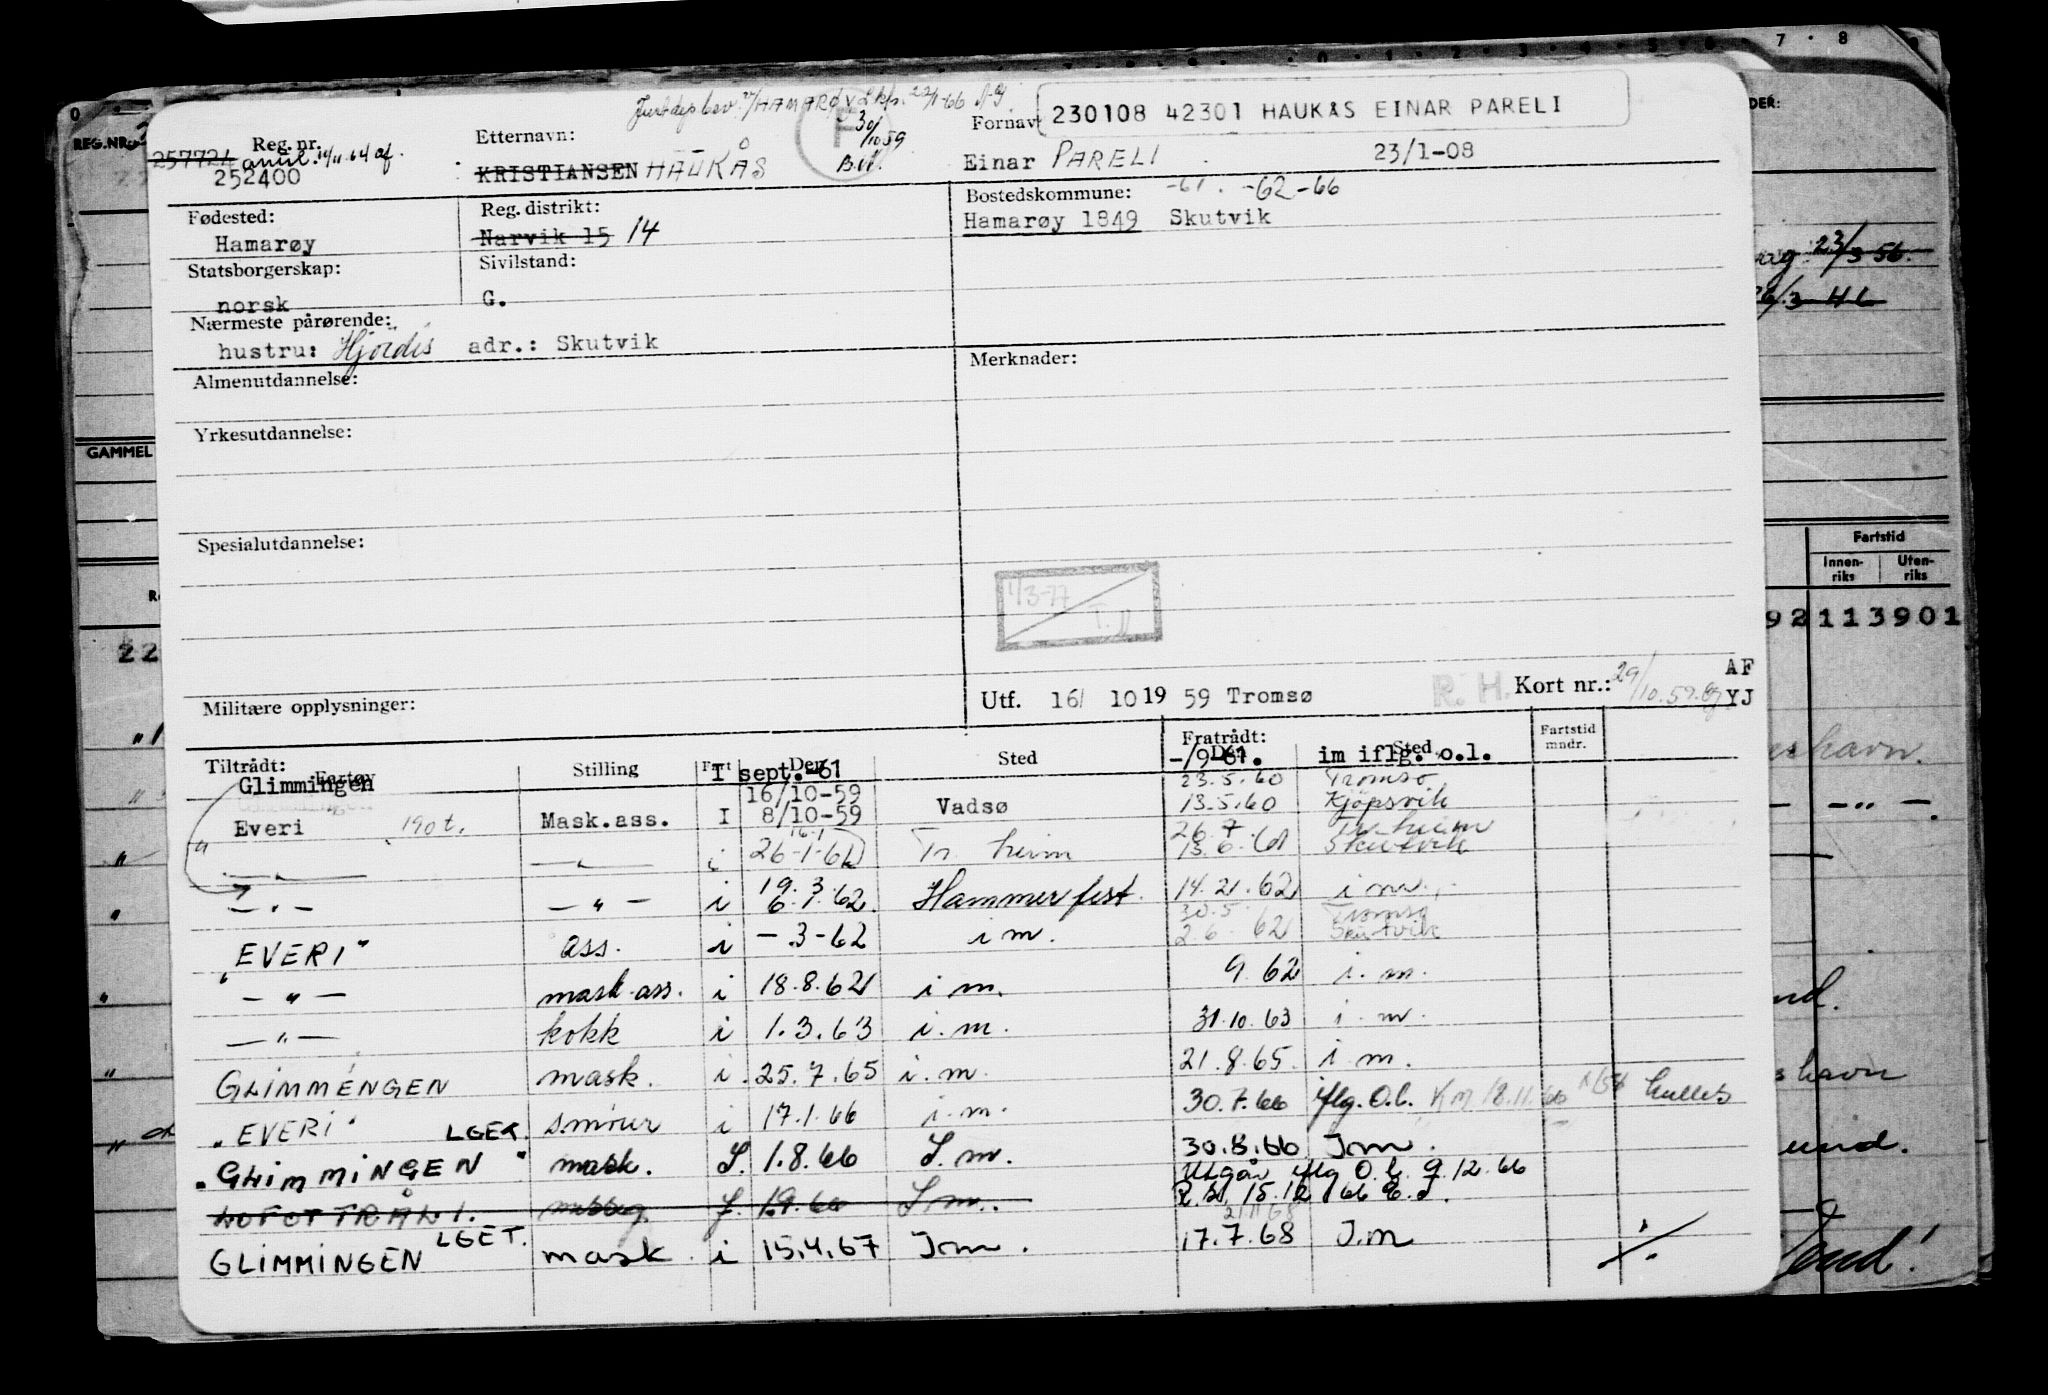 230108 42301 HAUKÅS EINAR PARELI
Reg. nr. Etternavn: Fornavn
257724 anul. 14/11.64 af. 30/10 59
252400 KRISTIANSEN HAUKÅS B.N. Einar PARELI 23/1-08
Fødested: Reg. distrikt: Bostedskommune: -61. -62-66
Hamarøy Narvik 15 14 Hamarøy 1849 Skutvik
Statsborgerskap: Sivilstand:
norsk G.
Nærmeste pårørende:
hustru: Hjørdis adr.: Skutvik
Almenutdannelse: Merknader:
Yrkesutdannelse:
Spesialutdannelse:
1/3-77
Militære opplysninger: Utf. 16/ 10 19 59 Tromsø R. H. Kort nr.: 29/10.59. AF
YJ
Tiltrådt: Fartøy Stilling Fart Den Sted Fratrådt: Den Sted Fartstid mndr.
Glimmingen I sept.-61 -/9-61. im iflg. o.l.
16/10-59 23.5.60 Tromsø
Everi 190 t. Mask.ass. I 8/10-59 Vadsø 13.5.60 Kjöpsvik
26.7. Tr heim
— " — — " — i 26-1-61 Tr. heim 13.6.61 Skutvik
19.3.
— " — — " — i 6.1.62. Hammerfest. 14.21.62 i m.
30.5. Tromsø
"EVERI" ass. i -.3-62 i m. 2.6. 62 Skutvik
— " — mask.ass. i 18.8.62 i m. 9.62 i. m.
— " — kokk i 1.3.63 i. m. 31.10.63 i. m.
GLIMMENGEN mask. i. 25.7.65 i. m. 21.8.65. i m.
"EVERI" smører i 17.1.66 i. m. 30.7.66 iflg. O.l. 18.11.66
LGET.
"GLIMMINGEN" mask. I. 1.8.66 I. m. 30.8.66 I m.
Utgår iflg O.l. 9.12.66
LOFOTTRÅL I. I. 1.9.66 I. m. 15.12 66
LGET.
GLIMMINGEN mask. i 15.4.67 I m. 17.7.68 I.m
REG.NR.
GAMMEL
DER:
23/3 56.
26/3 46
Fartstid
Innen-riks Uten-riks
92113901
22